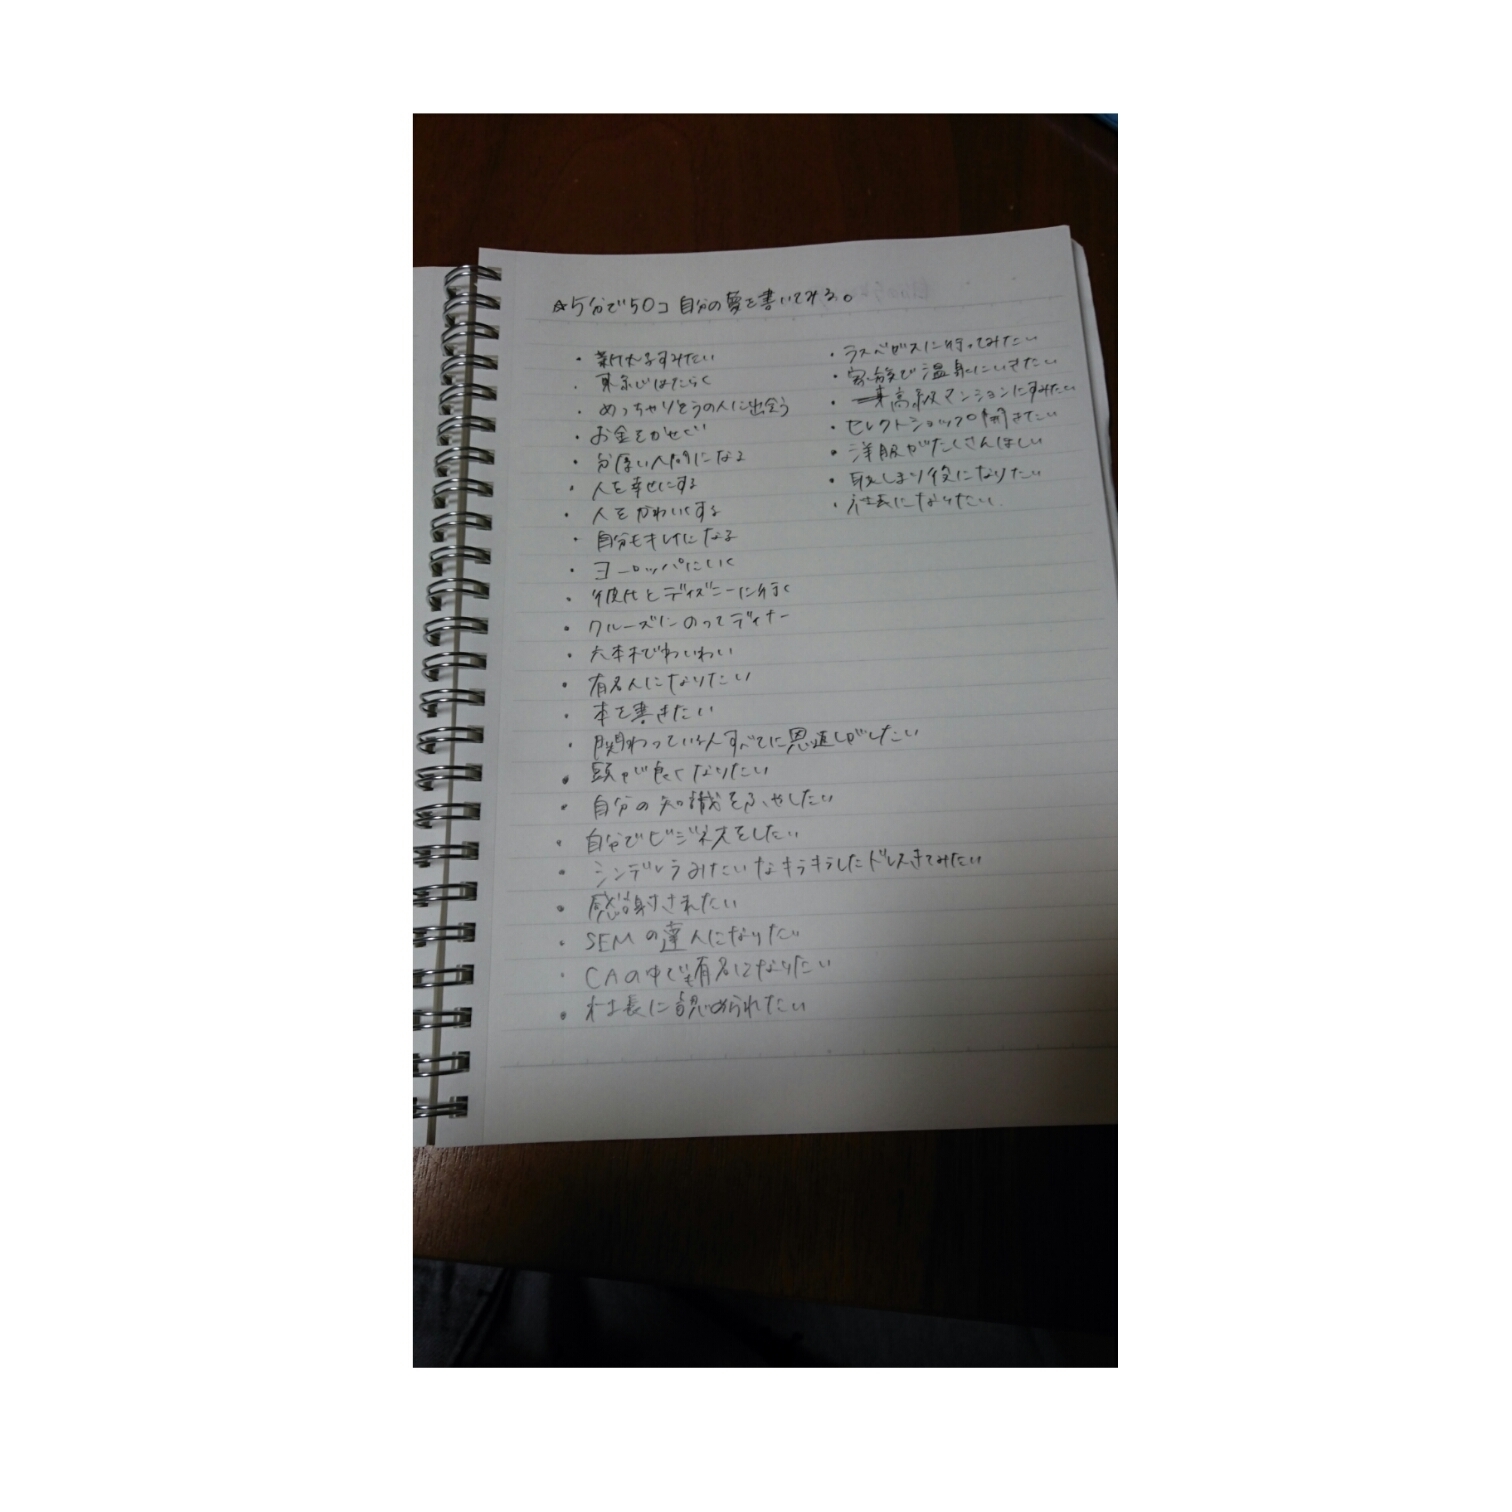 ☆5分で50コ 自分の夢を書いてみる。
・すみたい
・東京ではたらく
・めっちゃりそうの人に出会う
・お金をかせぐ
・分厚い人間になる
・人を幸せにする
・人をかわいくする
・自分もキレイになる
・ヨーロッパにいく
・彼氏とディズニーに行く
・クルーズにのってディナー
・六本木でわいわい
・有名人になりたい
・本を書きたい
・関わっている人すべてに恩返しがしたい
・頭が良くなりたい
・自分の知識をふやしたい
・自分でビジネスをしたい
・シンデレラみたいなキラキラしたドレスきてみたい
・感謝されたい
・SEMの達人になりたい
・CAの中でも有名になりたい
・社長に認められたい
・ラスベガスに行ってみたい
・家族で温泉にいきたい
・高級マンションにすみたい
・セレクトショップ開きたい
・洋服がたくさんほしい
・取しまり役になりたい
・社長になりたい